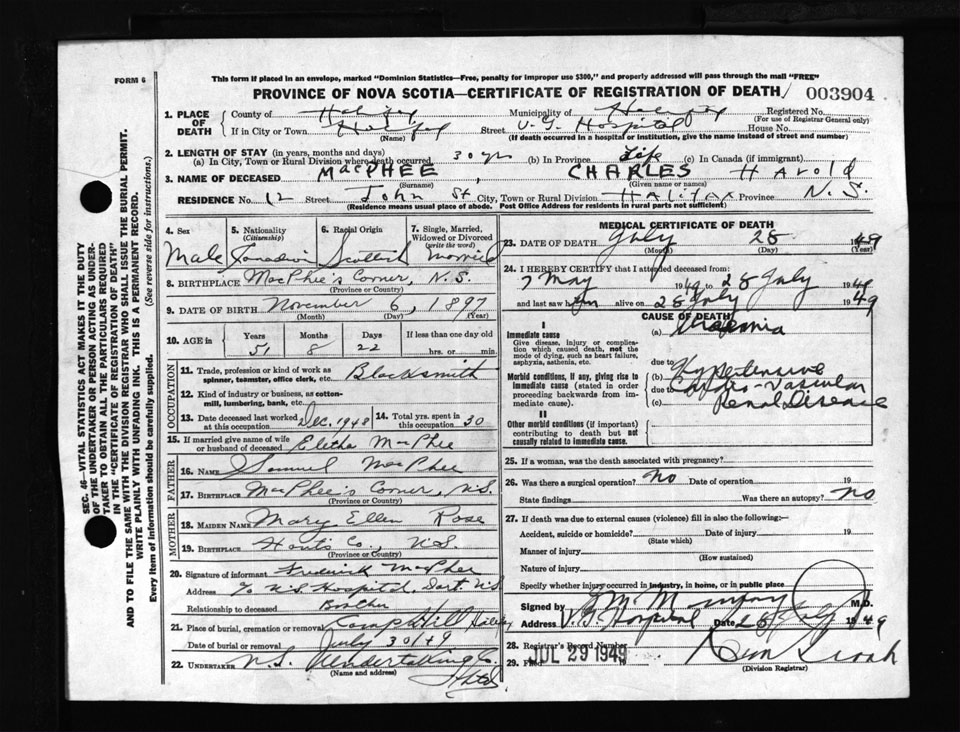 FORM 6
This form if placed in an envelope, marked "Dominion Statistics—Free, penalty for improper use $300," and properly addressed will pass through the mail "FREE"
PROVINCE OF NOVA SCOTIA—CERTIFICATE OF REGISTRATION OF DEATH 003904
1. PLACE OF DEATH
County of Halifax Municipality of Halifax Registered No.
(For use of Registrar General only)
If in City or Town Halifax Street V.G. Hospital House No.
(Name) (If death occurred in a hospital or institution, give the name instead of street and number)
2. LENGTH OF STAY (in years, months and days)
(a) In City, Town or Rural Division where death occurred 30 yrs (b) In Province Life (c) In Canada (if immigrant)
3. NAME OF DECEASED MacPHEE, CHARLES Harold
(Surname) (Given name or names)
RESIDENCE No. 12 John St City, Town or Rural Division HALIFAX Province N.S.
(Residence means usual place of abode. Post Office Address for residents in rural parts not sufficient)
4. Sex
Male
5. Nationality
(Citizenship)
Canadian
6. Racial Origin
Scottish
7. Single, Married, Widowed or Divorced
(write the word)
Married
8. BIRTHPLACE MacPhee's Corner, N.S.
(Province or Country)
9. DATE OF BIRTH November 6, 1897
(Month) (Day) (Year)
10. AGE in Years Months Days If less than one day old
51 8 22 hrs. or min.
OCCUPATION
11. Trade, profession or kind of work as spinner, teamster, office clerk, etc. Blacksmith
12. Kind of industry or business, as cotton-mill, lumbering, bank, etc.
13. Date deceased last worked at this occupation Dec. 1948
14. Total yrs. spent in this occupation 30
15. If married give name of wife or husband of deceased MacPhee
FATHER
16. NAME Samuel MacPhee
17. BIRTHPLACE MacPhee's Corner, N.S.
(Province or Country)
MOTHER
18. MAIDEN NAME Mary Ellen Rose
19. BIRTHPLACE Hants Co., N.S.
(Province or Country)
20. Signature of informant Fredrick MacPhee
Address c/o N.S. Hospital, Dart. N.S.
Relationship to deceased Brother
21. Place of burial, cremation or removal Camp Hill Halifax
Date of burial or removal July 30/49
22. UNDERTAKER N.S. Undertaking Co.
(Name and address)
MEDICAL CERTIFICATE OF DEATH
23. DATE OF DEATH July 28 1949
(Month) (Day) (Year)
24. I HEREBY CERTIFY that I attended deceased from:
7 May 1949 to 28 July 1949
and last saw him alive on 28 July 1949
CAUSE OF DEATH
I
Immediate cause
Give disease, injury or complication which caused death, not the mode of dying, such as heart failure, asphyxia, asthenia, etc.
(a) Uraemia
due to
Morbid conditions, if any, giving rise to immediate cause (stated in order proceeding backwards from immediate cause).
(b) Hypertensive
due to Cardio-Vascular
(c) Renal Disease
II
Other morbid conditions (if important) contributing to death but not causally related to immediate cause.
25. If a woman, was the death associated with pregnancy?
26. Was there a surgical operation? No Date of operation 19
State findings Was there an autopsy? No
27. If death was due to external causes (violence) fill in also the following:—
Accident, suicide or homicide? Date of injury 19
(State which)
Manner of injury
(How sustained)
Nature of injury
Specify whether injury occurred in industry, in home, or in public place
Signed by M.D.
Address V.G. Hospital Date 28 July 1949
28. Registrar's Record Number
29. JUL 29 1949
(Division Registrar)
SEC. 46—VITAL STATISTICS ACT MAKES IT THE DUTY
OF THE UNDERTAKER OR PERSON ACTING AS UNDER-
TAKER TO OBTAIN ALL THE PARTICULARS REQUIRED
IN THE "CERTIFICATE OF REGISTRATION OF DEATH"
AND TO FILE THE SAME WITH THE DIVISION REGISTRAR WHO SHALL ISSUE THE BURIAL PERMIT.
WRITE PLAINLY WITH UNFADING INK. THIS IS A PERMANENT RECORD.
Every item of information should be carefully supplied. (See reverse side for instructions.)